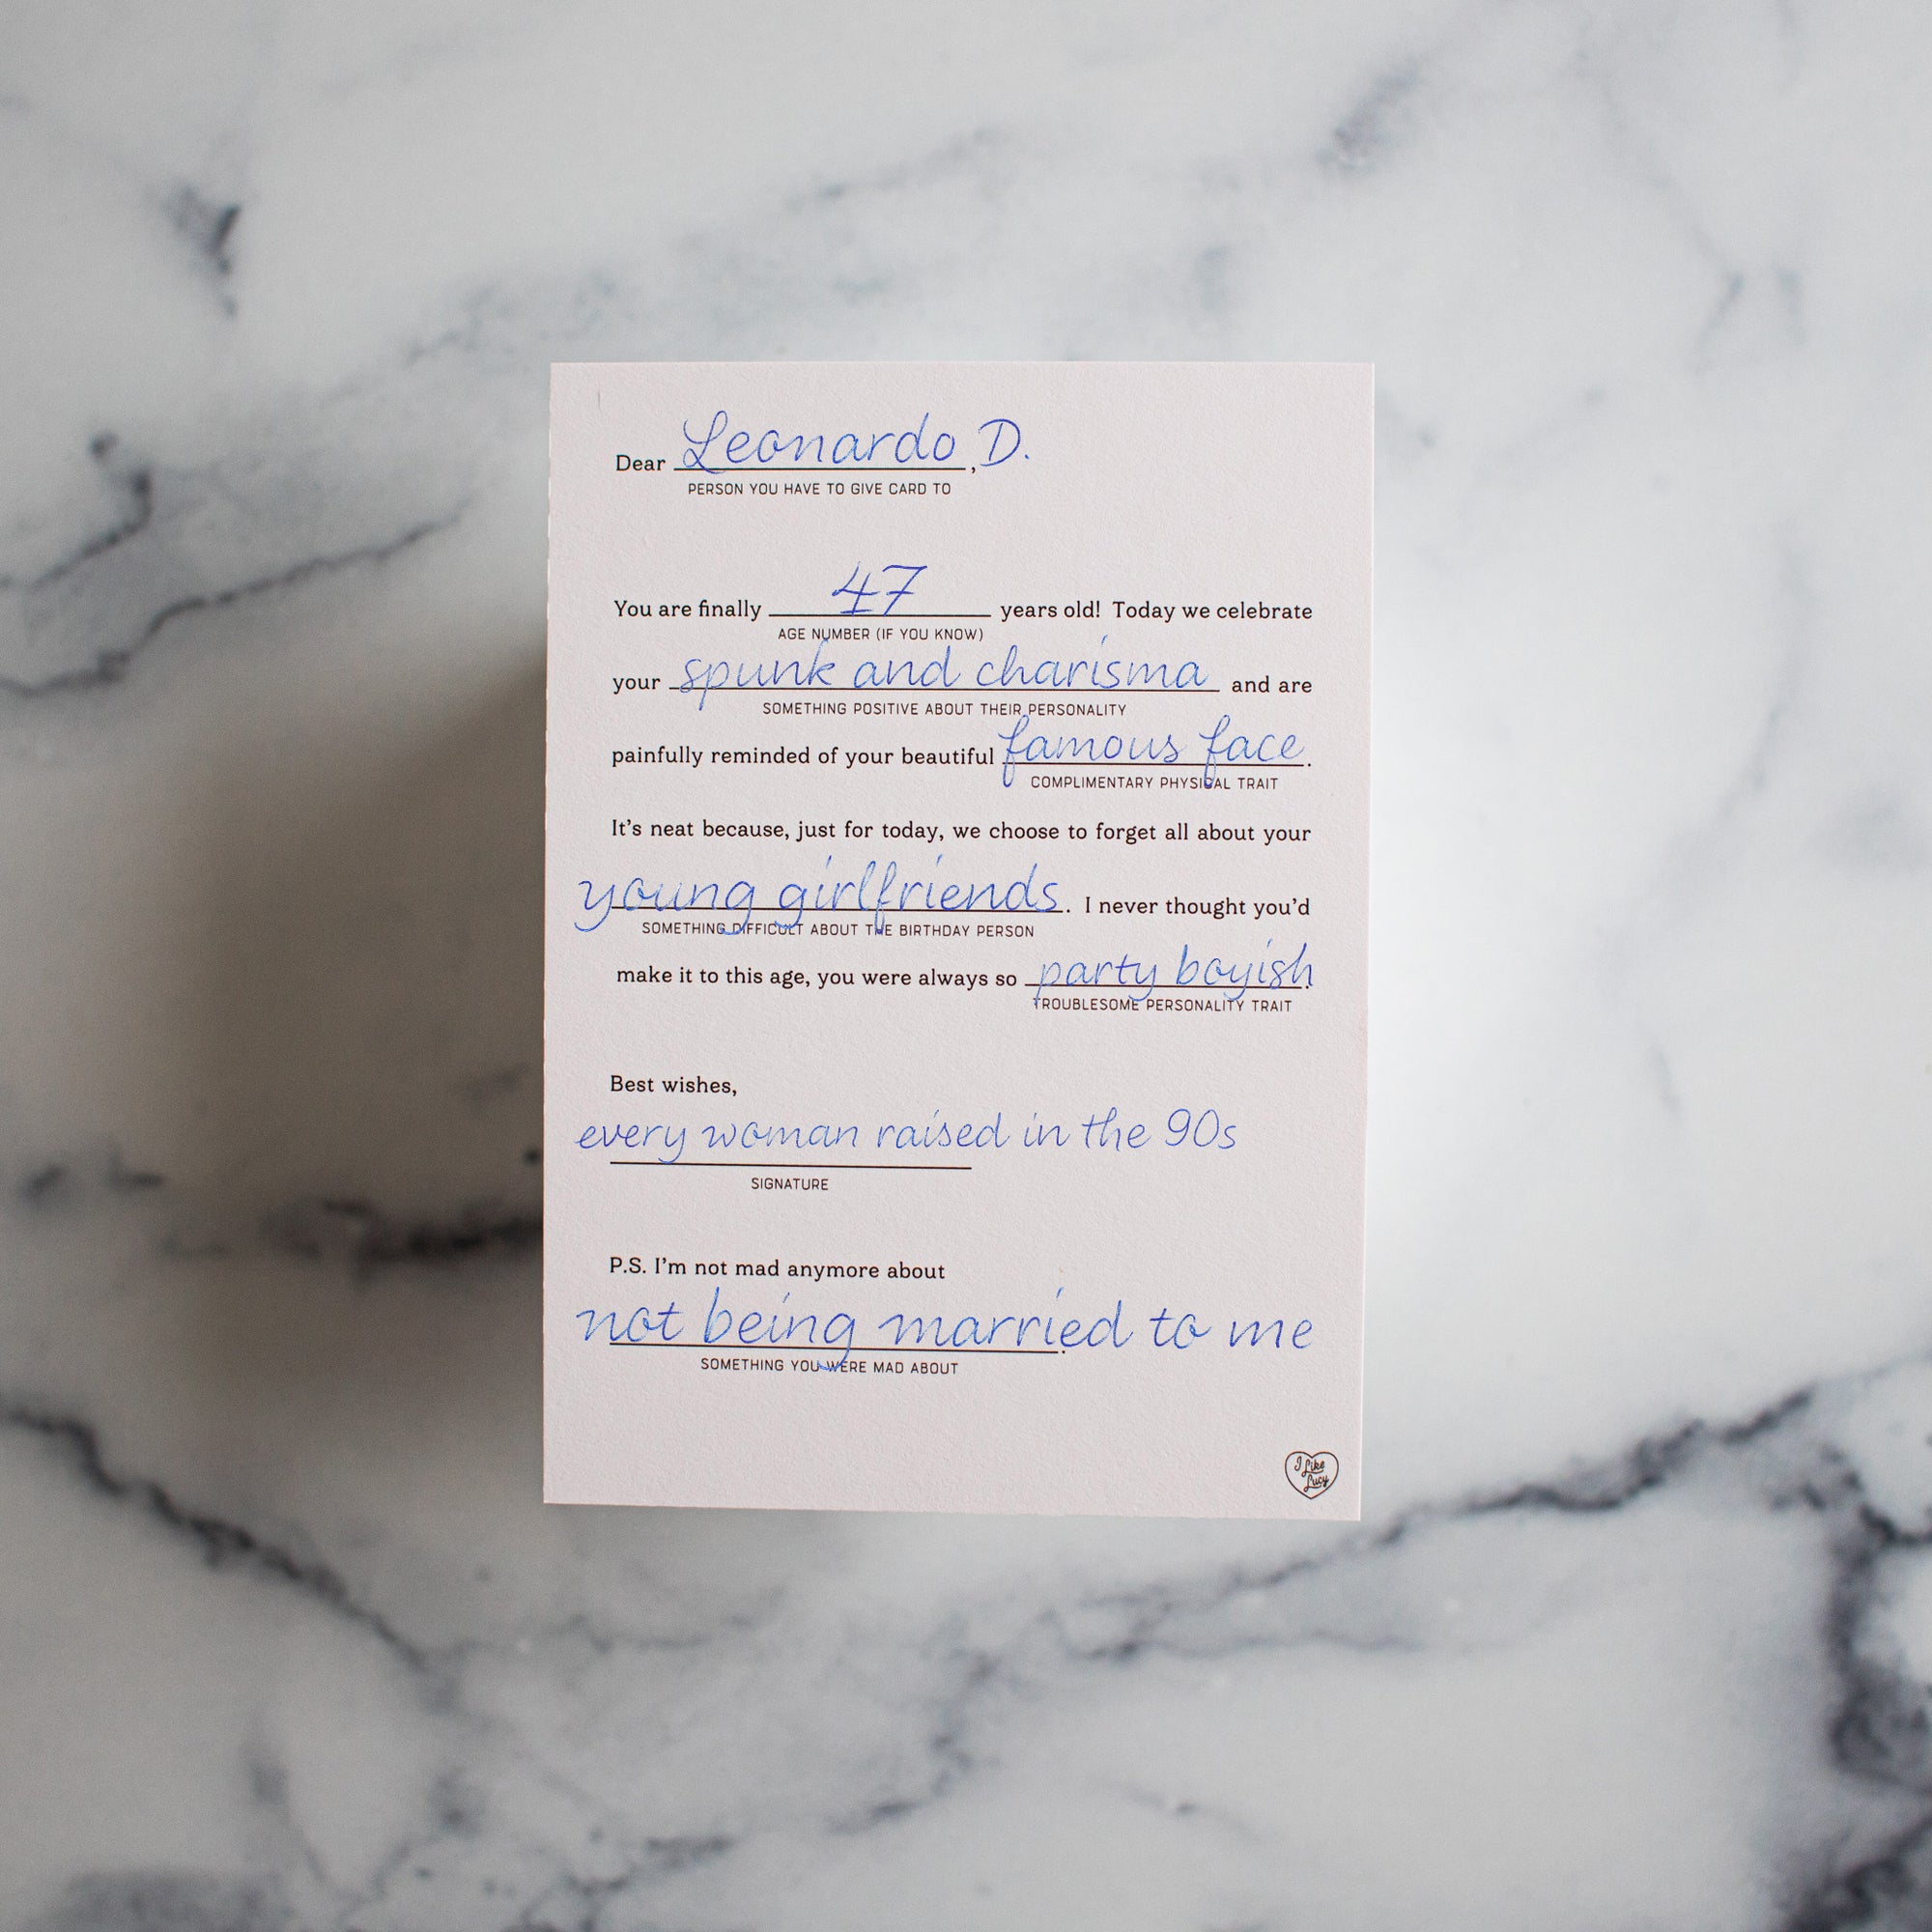 Dear Leonardo, D.
PERSON YOU HAVE TO GIVE CARD TO
You are finally 47 years old! Today we celebrate
AGE NUMBER (IF YOU KNOW)
your spunk and charisma and are
SOMETHING POSITIVE ABOUT THEIR PERSONALITY
painfully reminded of your beautiful famous face.
COMPLIMENTARY PHYSICAL TRAIT
It's neat because, just for today, we choose to forget all about your
young girlfriends. I never thought you'd
SOMETHING DIFFICULT ABOUT THE BIRTHDAY PERSON
make it to this age, you were always so party boyish.
TROUBLESOME PERSONALITY TRAIT
Best wishes,
every woman raised in the 90s
SIGNATURE
P.S. I'm not mad anymore about
not being married to me.
SOMETHING YOU WERE MAD ABOUT
I Like
Lucy